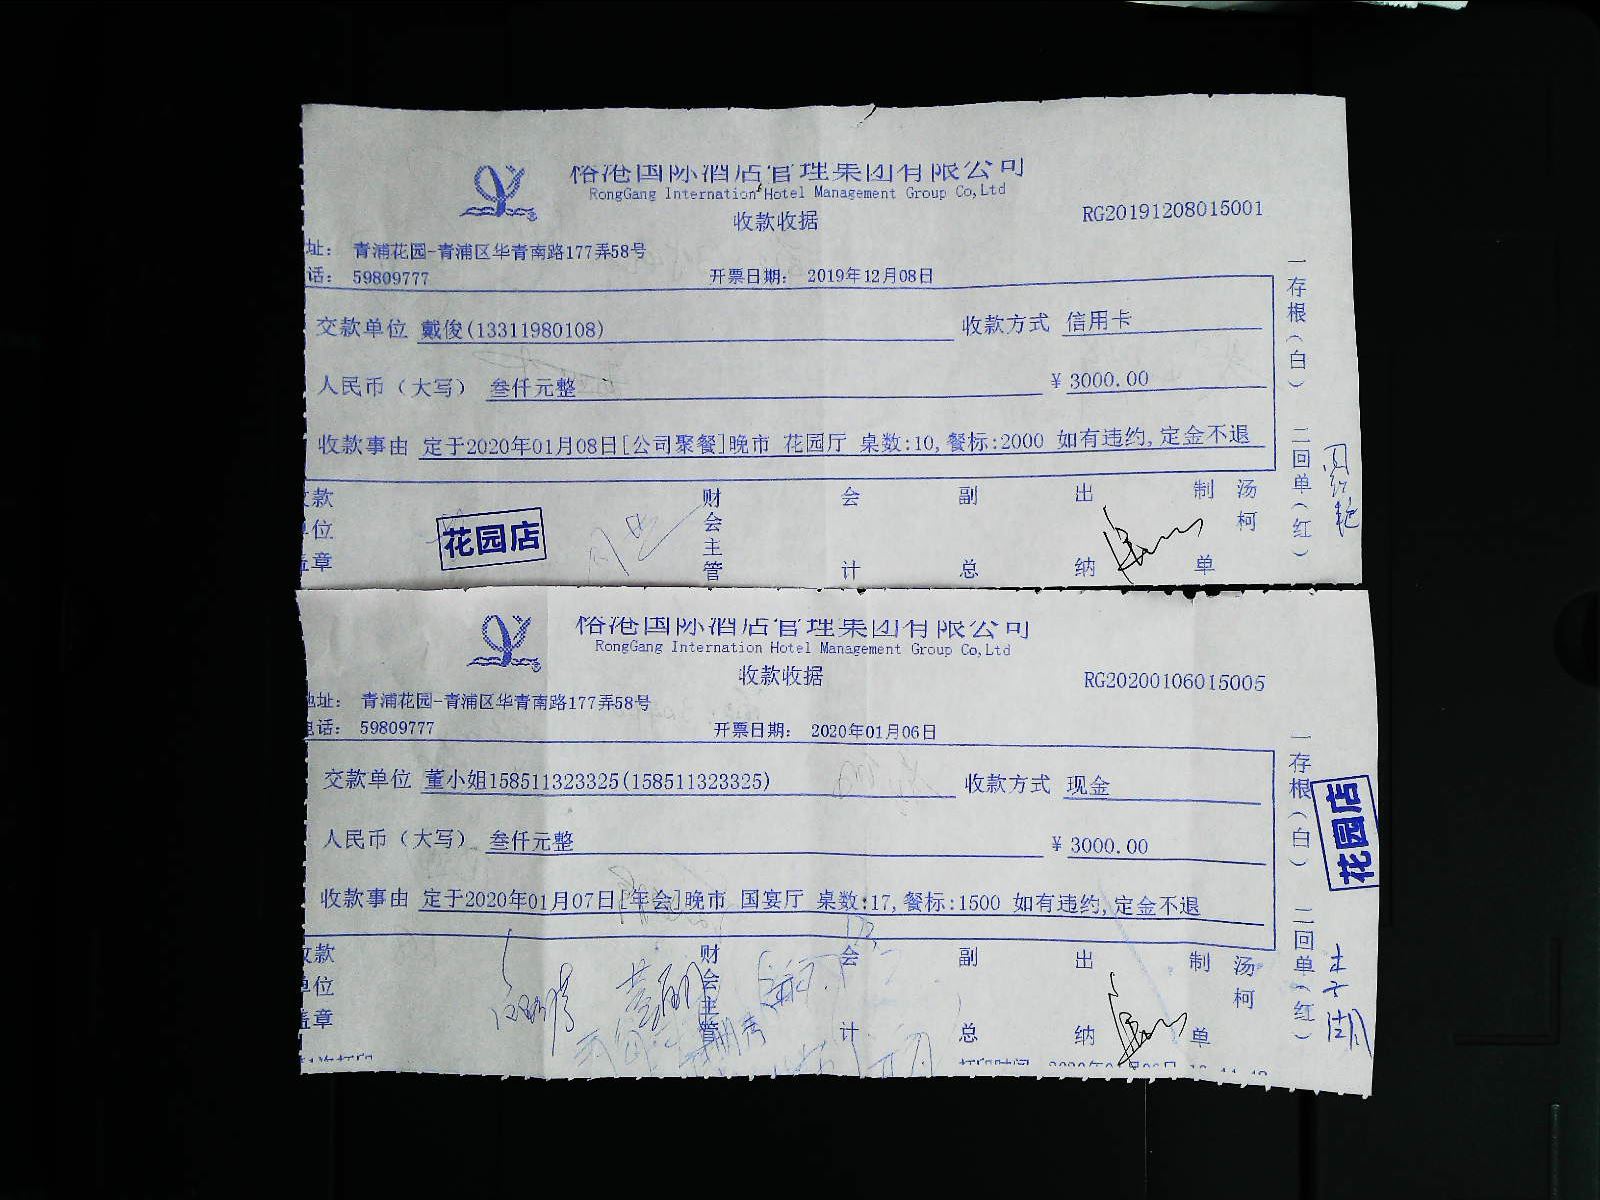 榕港国际酒店管理集团有限公司
RongGang Internation Hotel Management Group Co,Ltd
收款收据
RG20191208015001
址： 青浦花园-青浦区华青南路177弄58号
话： 59809777 开票日期： 2019年12月08日
交款单位 戴俊(13311980108) 收款方式 信用卡
人民币（大写） 叁仟元整 ￥ 3000.00
收款事由 定于2020年01月08日[公司聚餐]晚市 花园厅 桌数:10,餐标:2000 如有违约,定金不退
一存根（白） 二回单（红）
收款单位盖章 财会主管 会计 副总 出纳 制单 汤柯
花园店
榕港国际酒店管理集团有限公司
RongGang Internation Hotel Management Group Co,Ltd
收款收据
RG20200106015005
地址： 青浦花园-青浦区华青南路177弄58号
电话： 59809777 开票日期： 2020年01月06日
交款单位 董小姐158511323325(158511323325) 收款方式 现金
人民币（大写） 叁仟元整 ￥ 3000.00
收款事由 定于2020年01月07日[年会]晚市 国宴厅 桌数:17,餐标:1500 如有违约,定金不退
一存根（白） 二回单（红）
花园店
收款单位盖章 财会主管 会计 副总 出纳 制单 汤柯